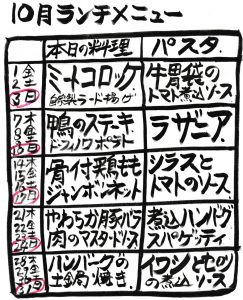 10月ランチメニュー
本日の料理
パスタ
1 金
2 土
3 日
ミートコロッケ
自家製ラード揚げ
牛胃袋の
トマト煮込ソース
7 木
8 金
鴨のステキ
ラザニア
14 木
15 金
骨付鶏もも
ジャンボンネット
シラスと
トマトのソース
21 木
22 金
やわらか豚バラ
肉のマスタードソース
煮込ハンバーグ
スパゲッティ
28 木
ハンバーグの
土鍋焼き
イワシと
の煮込ソース